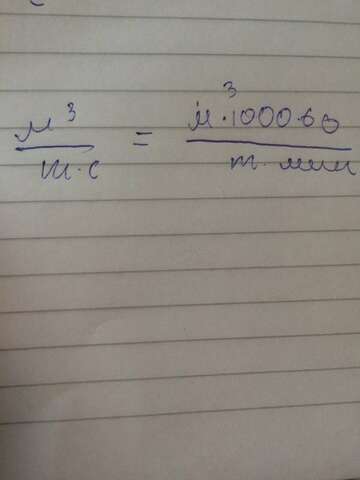 м³/т·с = м³·1000·60/т·мин